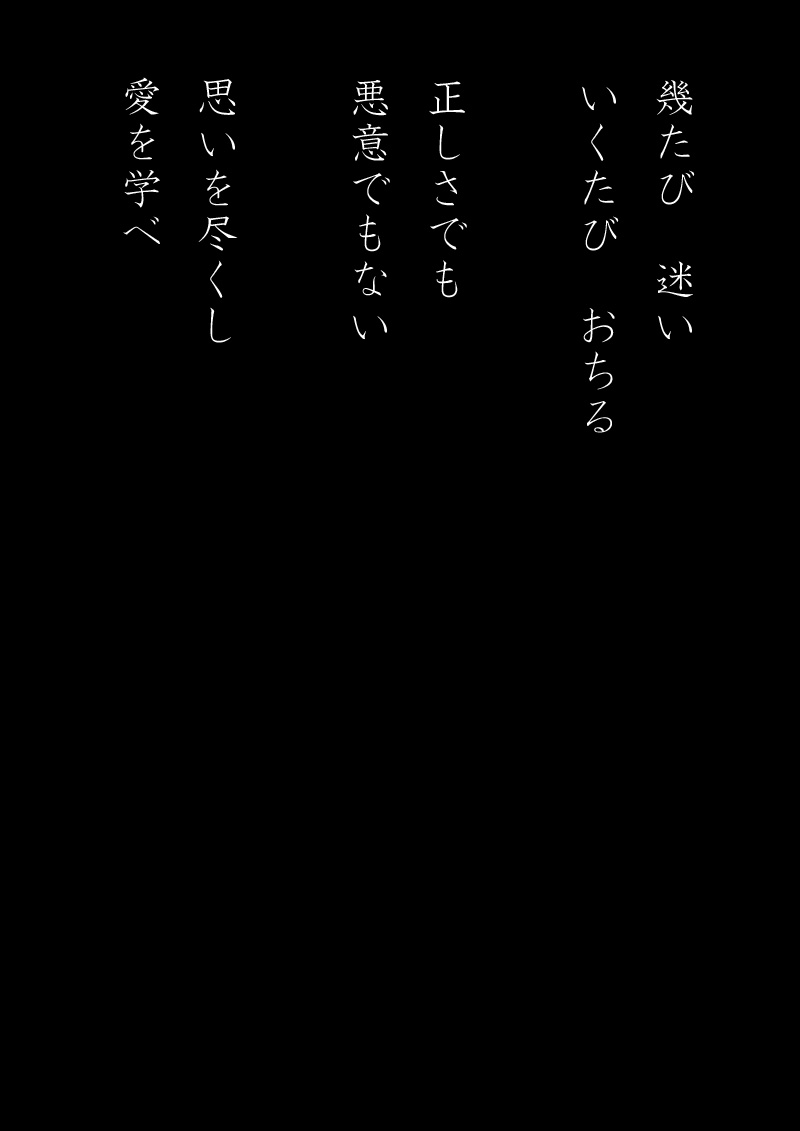 幾たび　迷い
いくたび　おちる
正しさでも
悪意でもない
思いを尽くし
愛を学べ